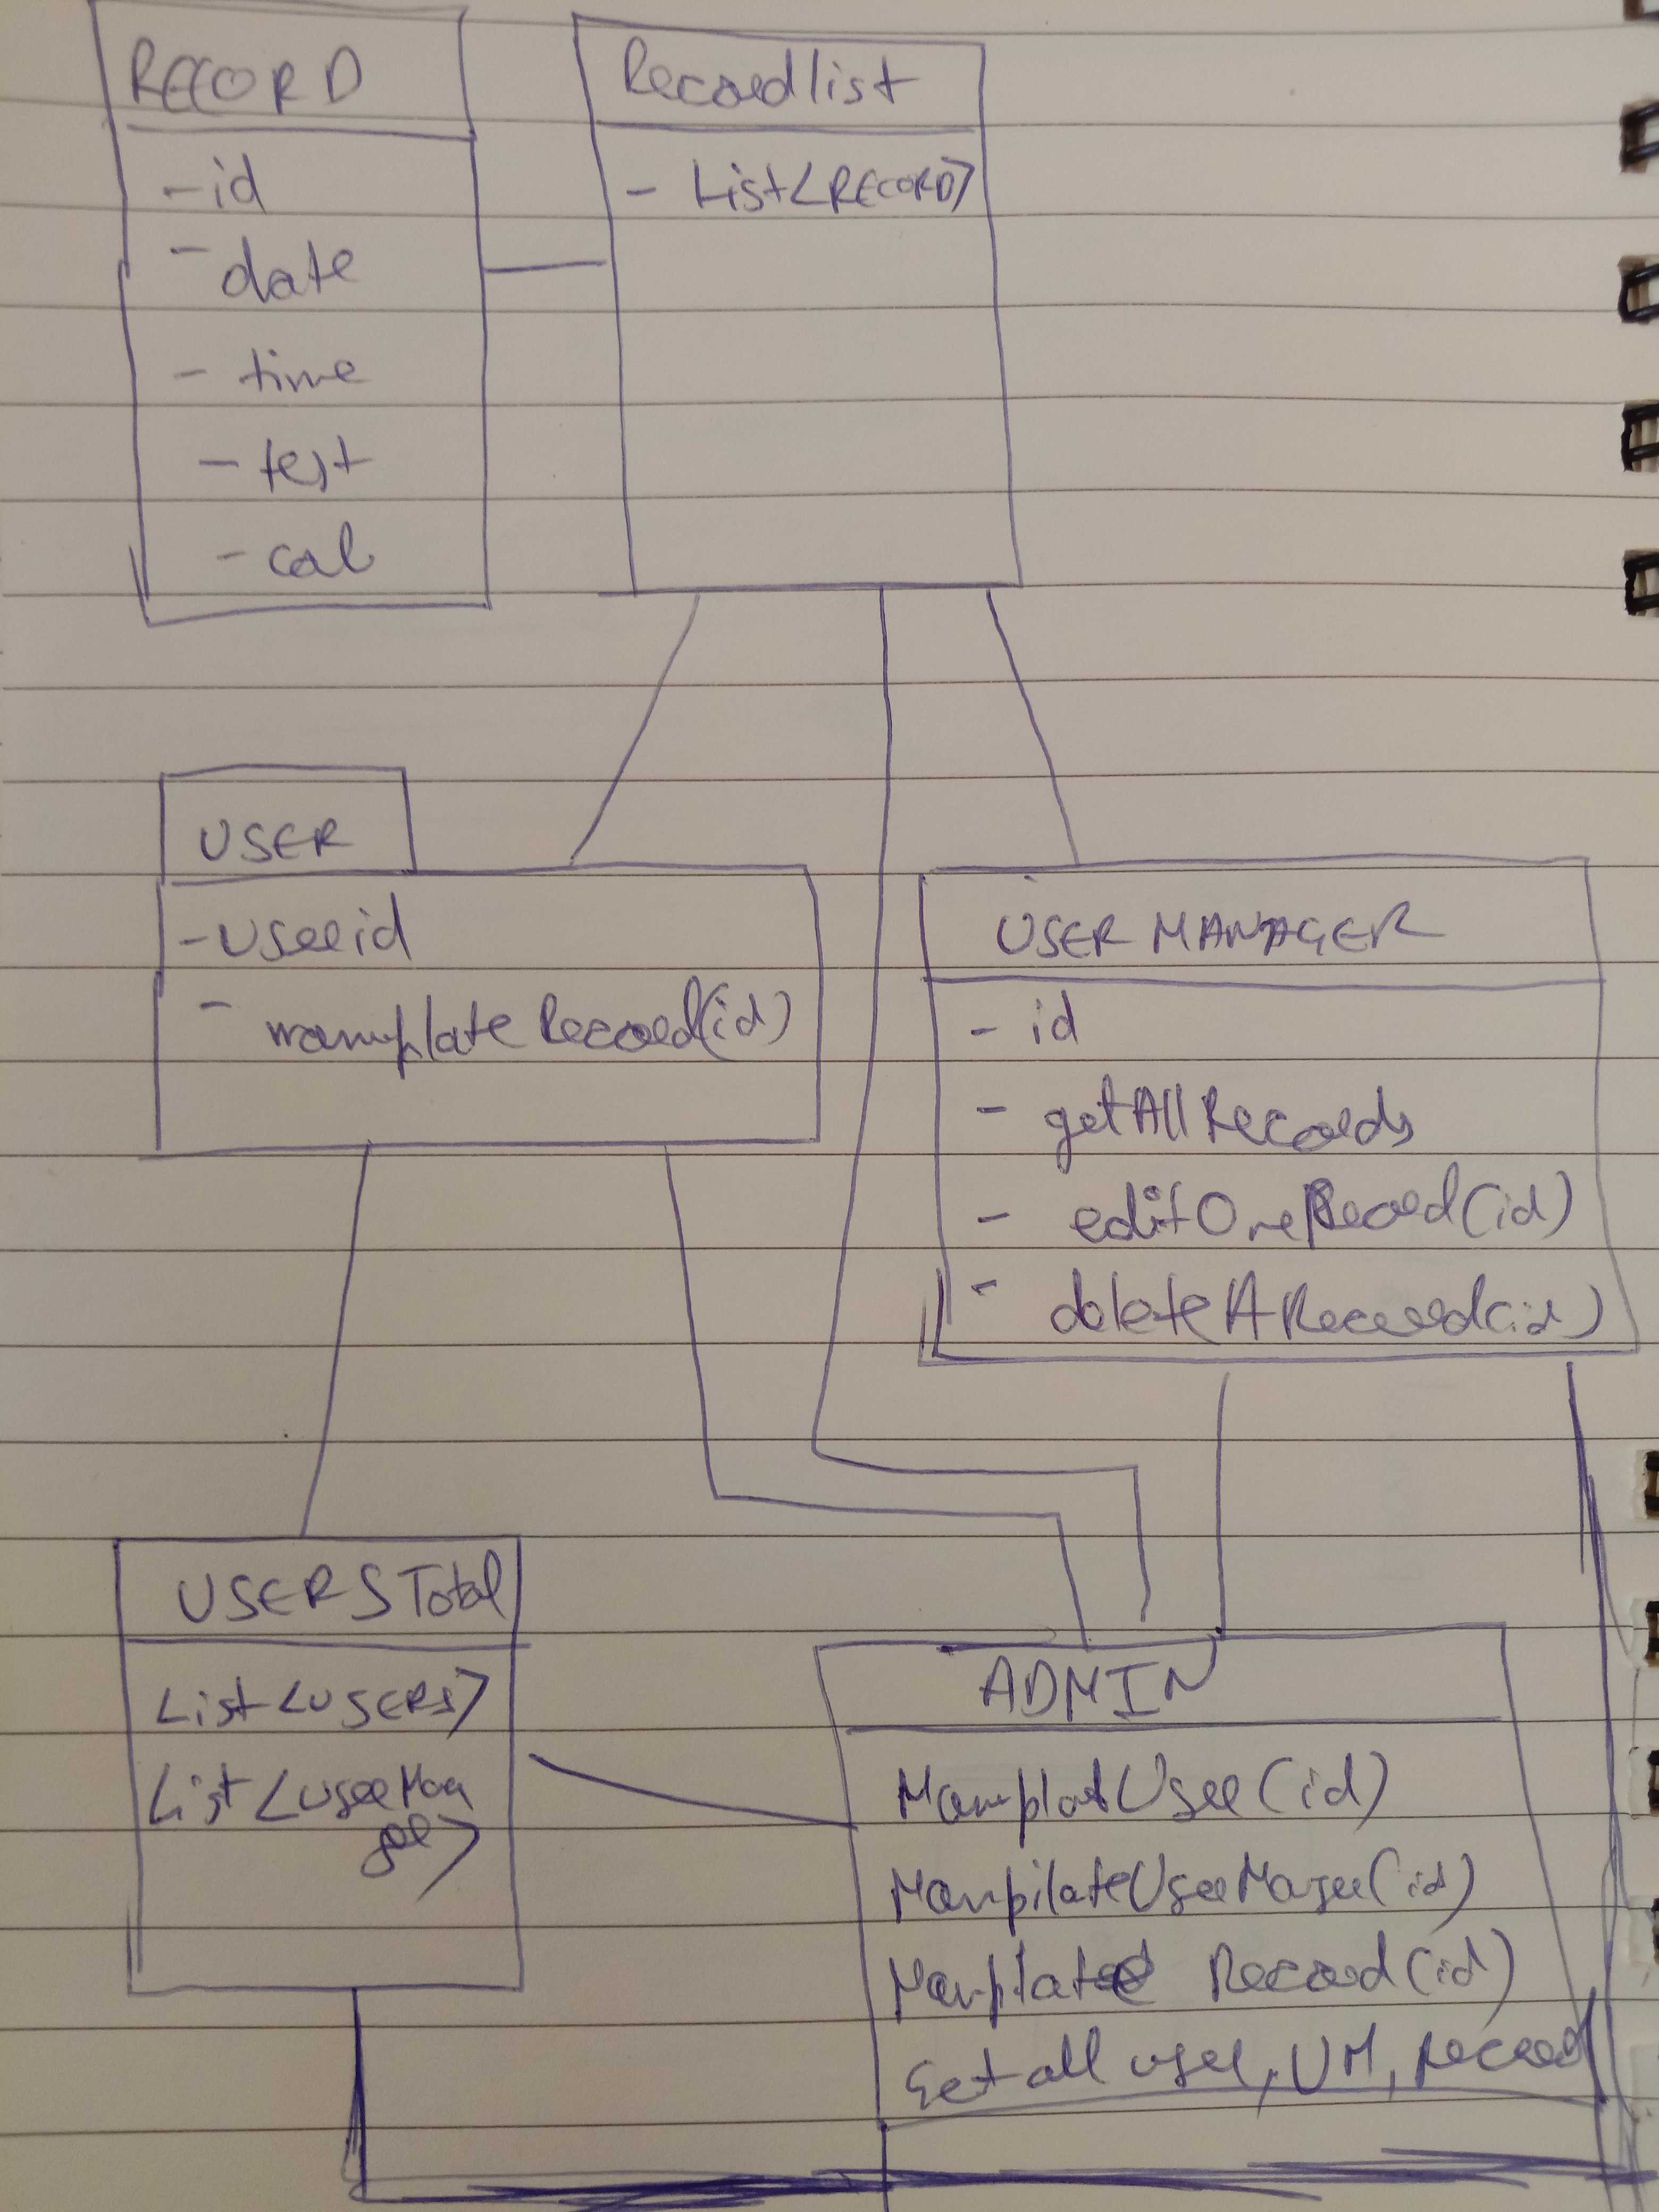 RECORD
- id
- date
- time
- test
- cal
Recordlist
- List<RECORD>
USER
- userid
- manuplate Record(id)
USER MANAGER
- id
- getAllRecords
- editOneRecord(id)
- deleteARecord(id)
USERS Total
List<USERS>
List<UserMan
ger>
ADMIN
ManplatUser(id)
ManpilateUserManger(id)
Manplate Record(id)
Get all user, UM, Record